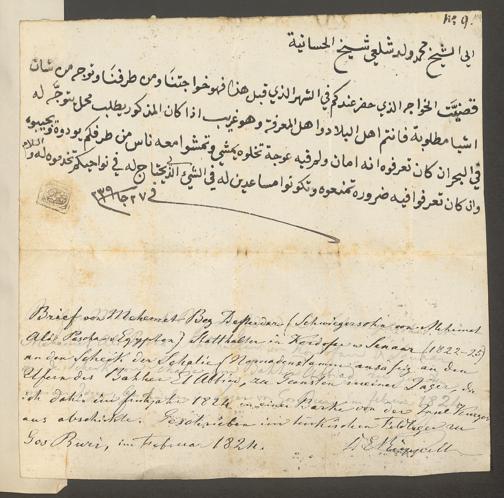 № 9.
الى الشيخ محمد ولد شلعى شيخ الحسانية
قضيت الخواجه الذى حضر عندكم فى الشهر الذى قبل هذا فهو خواجتنا ومن طرفنا وتوجه من شان
اشيا مطلوبة فانتم اهل البلاد واهل المعرفة وهو غريب اذا كان المذكور يطلب محل يتوجه له
فى البحر ان كان تعرفوا انه امان ولم فيه عوجة تخلوه يمشى وتمشوا معه ناس من طرفكم يودوه ويجيبوه
وان كان تعرفوا فيه ضروره تمنعوه وتكونوا مساعدين له فى الشئ الذى يحتاج له فى نواحيكم تخدموه له والسلام
فى ٢٧
Brief von Mehemet Beg Defterdar (Schwiegersohn von Mehemet
Ali Pascha v. Egypten) Statthalter in Kordofan u. Senaar (1822–25)
an den Scheik der (Nomadenstamm ansässig an den
Ufern des Bahher El Abbiad, zu Gunsten meiner Jäger, die
ich dahin im Frühjahr 1824 in einer Barke von der Insel
aus abschickte. Geschrieben im türkischen Feldlager zu
Gos Buri, im Februar 1824.
Rüppell